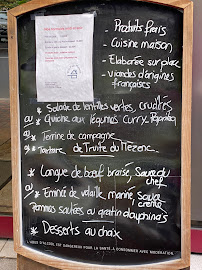 - Produits frais
- Cuisine maison
- Elaborée sur place
- Viandes d'origines
françaises
* Salade de lentilles vertes, crudités
* Quiche aux légumes Curry Paprika
* Terrine de campagne
* Tartare de Truite du Mézenc
* Langue de boeuf braisé, Sauce du
chef
* Emincé de volaille marinée, Sauce
crème
Pommes sautées ou gratin dauphinois
* Desserts au choix
L'ABUS D'ALCOOL EST DANGEREUX POUR LA SANTÉ, A CONSOMMER AVEC MODÉRATION